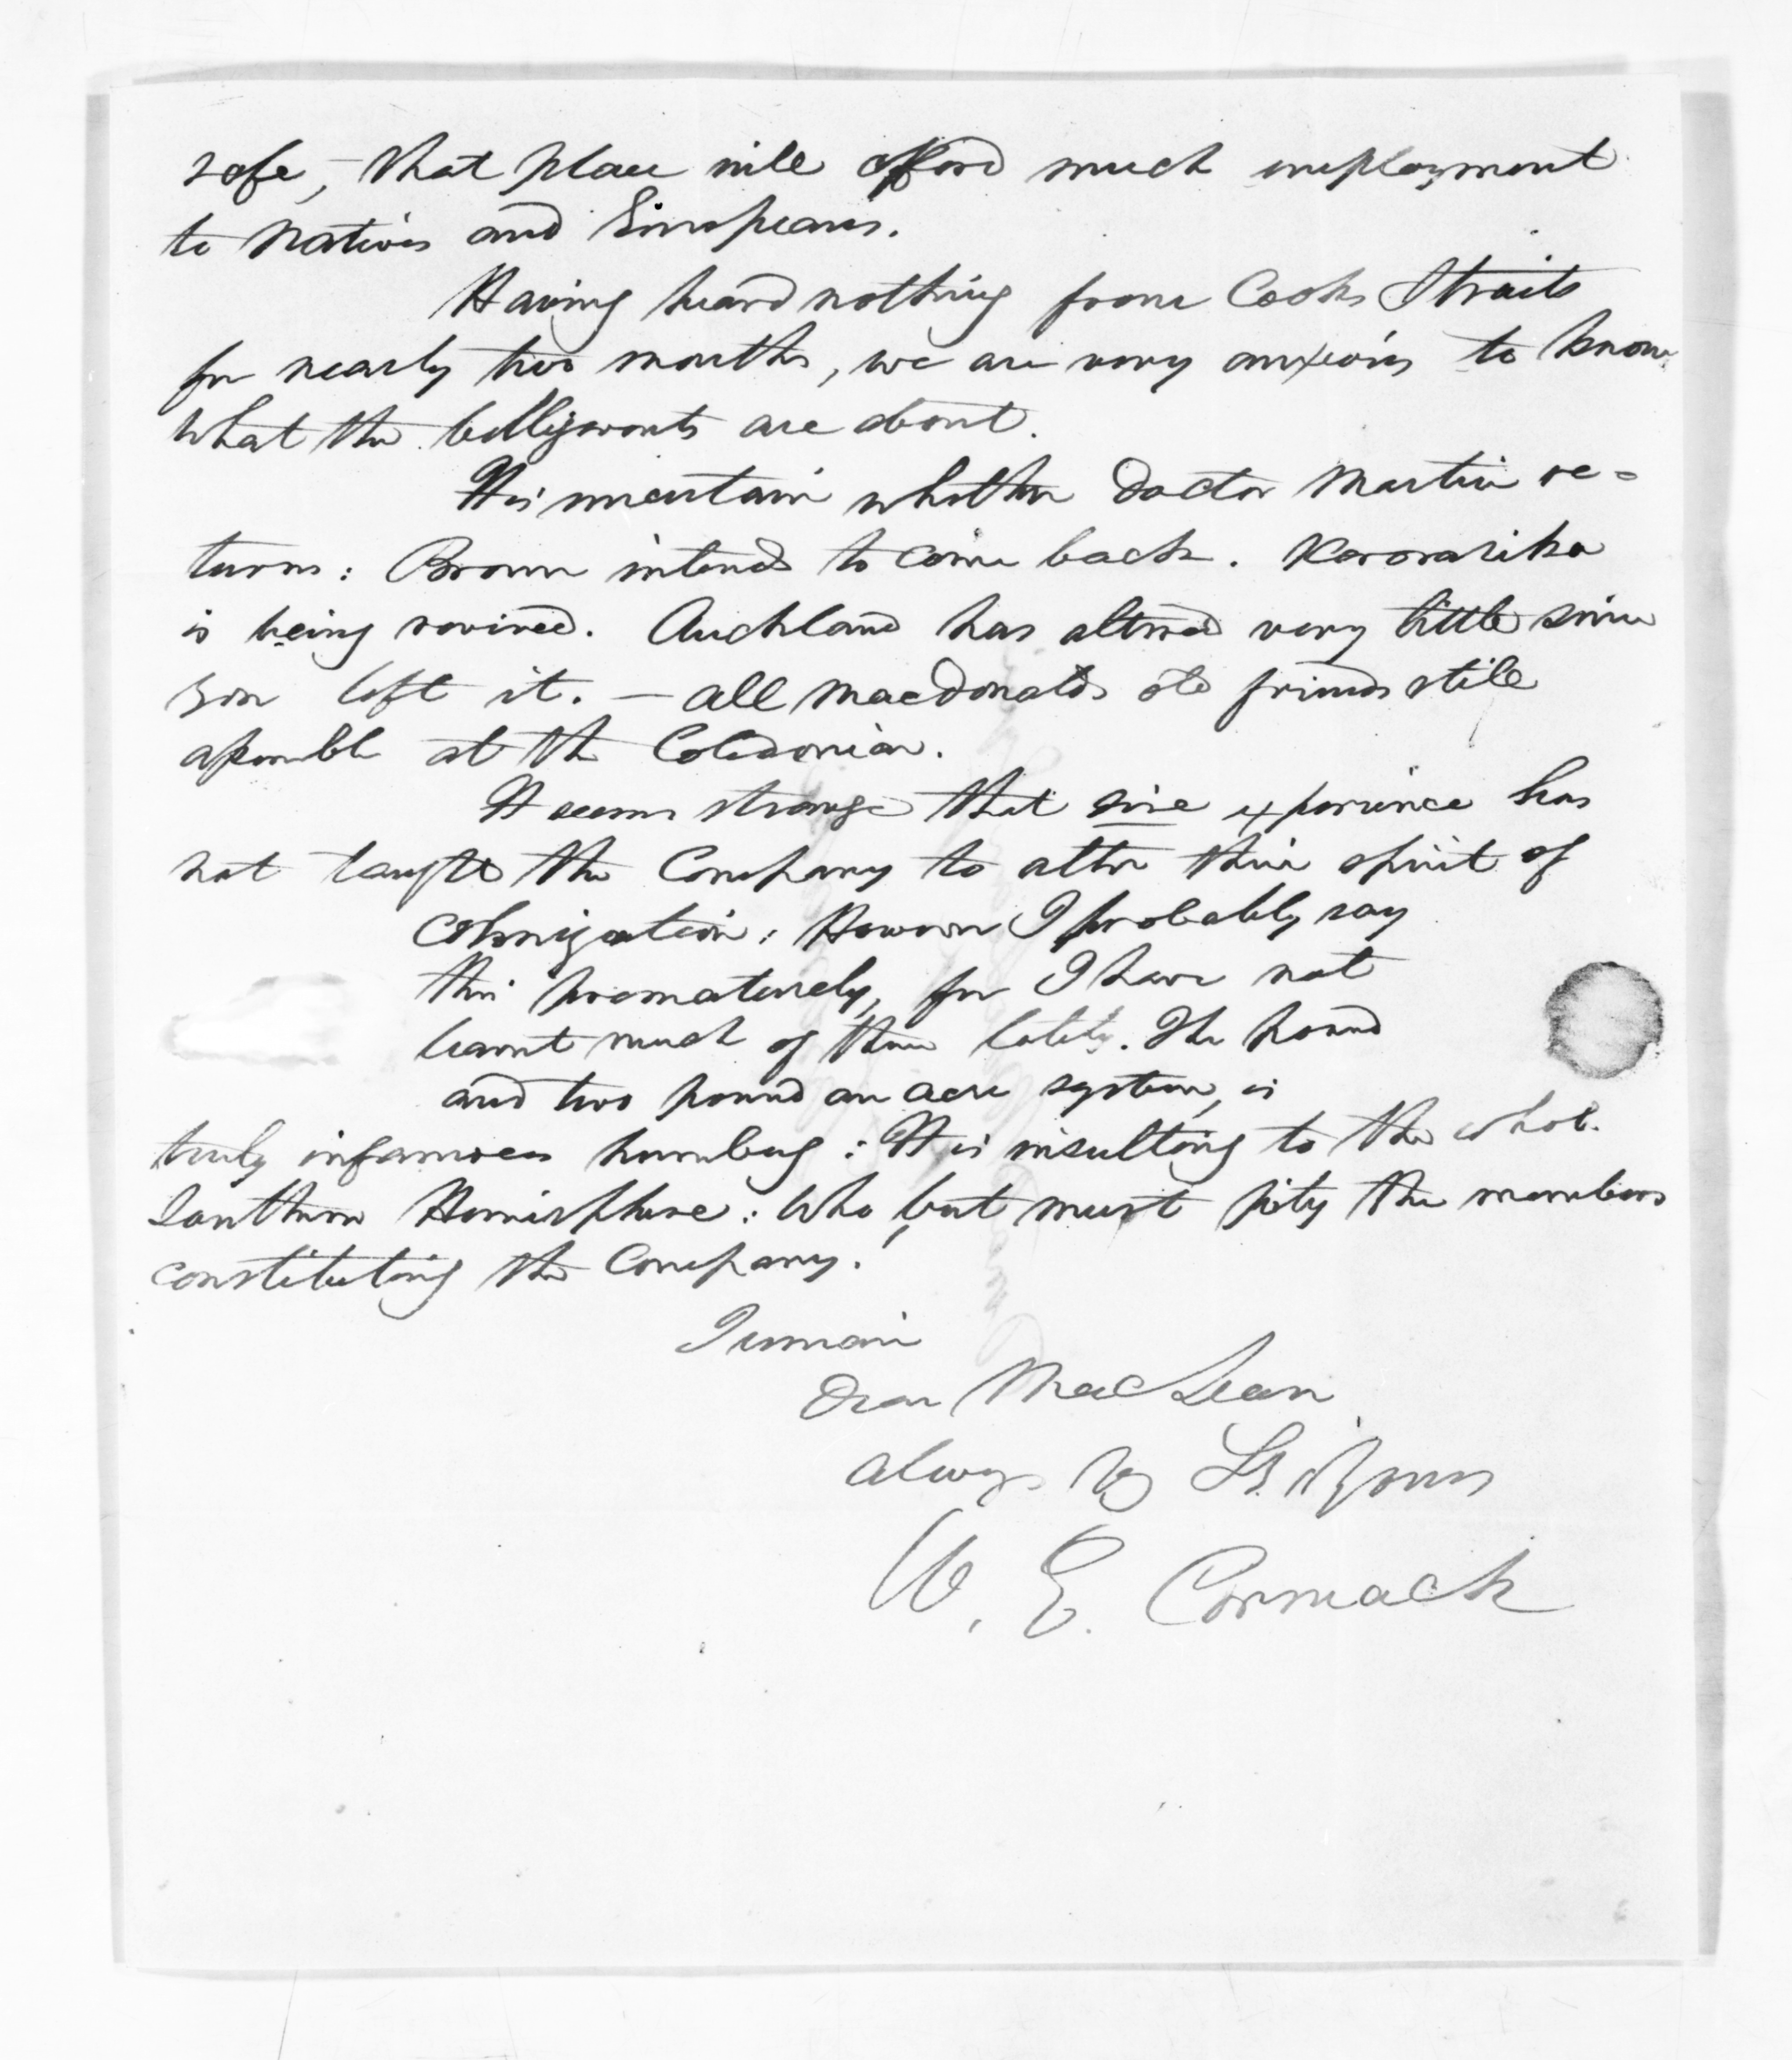 safe, - that place will afford much employment
to Natives and Europeans.
Having heard nothing from Cooks Straits
for nearly two months, we are very anxious to know
what the belligerents are about.
It is uncertain whether Doctor Martin re=
turns: Brown intends to come back. Kororarika
is being revived. Auckland has altered very little since
you left it. - all Macdonalds old friends still
assemble at the Caledonian.
It seems strange that dire experience has
not taught the Company to alter their spirit of
colonization: However I probably say
this prematurely, for I have not
learnt much of them lately. The pound
and two pound an acre system, is
truly infamous humbug: It is insulting to the whole
Southern Hemisphere: Who but must pity the members
constituting the Company!
I remain
Dear MacLean
always
yours
W. E. Cormack